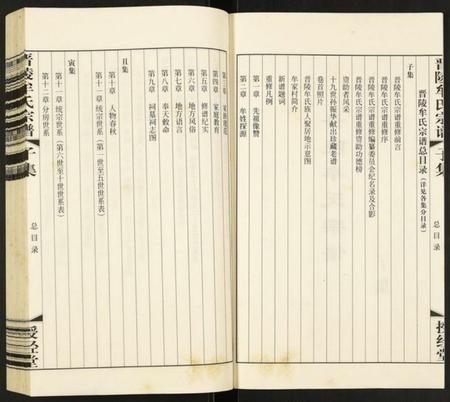 晋陵牟氏宗谱 子集
晋陵牟氏宗谱总目录（详见各集分目录）
子集
晋陵牟氏宗谱重修前言
晋陵牟氏宗谱重修序
晋陵牟氏宗谱重修编纂委员会纪名录及合影
晋陵牟氏宗谱重修资助功德榜
资助者风采
十九世孙振华献出珍藏老谱
卷首照片
晋陵牟氏族人聚居地示意图
牟家村简介
新谱题词
重修凡例
第一章 先祖像赞
第二章 牟姓探源
总目录
授经堂
第三章
第四章 家庭教育
第五章 修谱纪实
第六章 地方风俗
第七章 地方语言
第八章 奉天敕命
第九章 祠墓同志图
丑集
第十章 人物春秋
第十一章 统宗世系（第一世至五世世系表）
寅集
第十一章 统宗世系（第六世至十世世系表）
第十二章 分房世系
晋陵牟氏宗谱 子集
总目录
授经堂